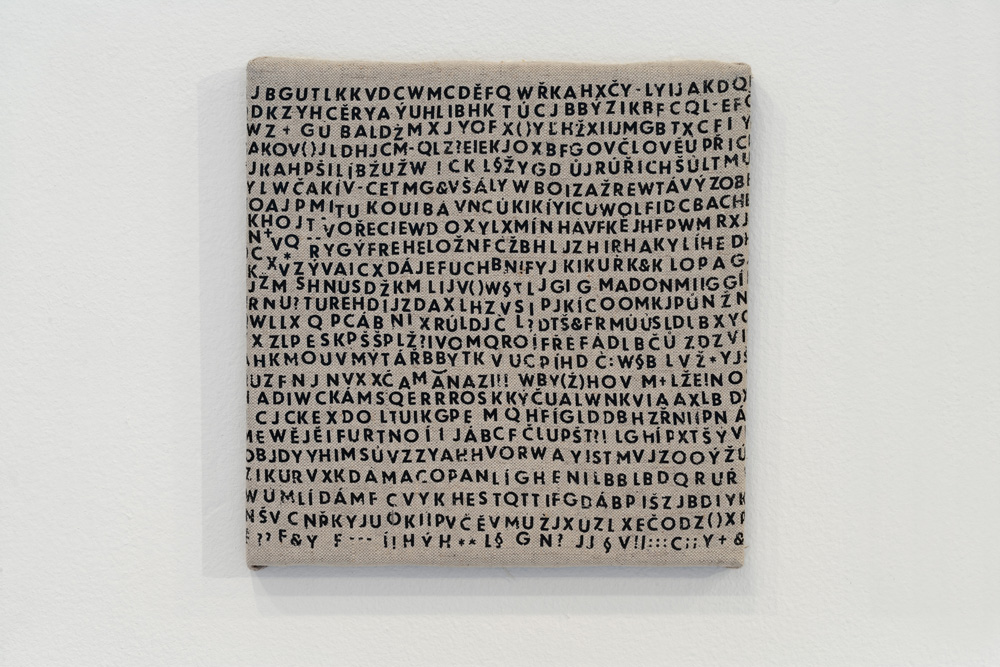 JBGUTLKKVDCWMCDĚFQ WŘKAHXČY-LYIJAKDQ
DKZYHCĚRYAÝUHLIBHK TÚCJBBÝZIKBFCQL-EFC
WZ + GU BALDŽMXJYOFX()YĽHŽXIIJMGBTXCFIY
AKOV()JLDHJCM-QLZ?EIEKJOXBFGOVČLOVĚUPŘIC
JKAHPŠILÍBŽUŽW!CKL§ŽYGDÚJRÚŘICHŠÚLTMU
YLWČAKÍV-CETMG&VŠÁLYWBOIZAŽREWTÁVÝZOB
OAJPMITUKOUIBAVNCÚKIKÍYICÚWOLFIDCBACHE
KHOJT-VOŘECIEWDOXYLXMÍNHAVFKĚJHFPWMRXJ
N+VQ--RYGÝFREHELOŽNFCŽBHLJZHIRHAKYLÍHED
CX*VZÝVAICXDÁJEFUCHBN!FYJKIKUŘK&KLOPAG
JZMSHNUSDŽKMLIJV()W§TLJGIGMADONMIIGGÍ
RNU?TUREHDIJZDAXLHZVSIPJKÍCOOMKJPÚNŽN
WLLXQPCÁBNIXRÚLDJČL?DTŠ&FRMÚÚSLDLBXYC
XZLPESKPŠŠPLŽ?IVOMQROÍFŘEFÁDLBČUZDZVI
AHKMOUVMÝTÁŘBBYTKVUCPÍHDČ:W§BLVŽ*YJ
UZFNJNVXXČAMĀNAZI!!WBY(Ž)HOVM+LŽE!NO
IADIWCKÁMSQERRROSKKÝČUALWNKVIAAXLBD
CJCKEXDOLTUIKGPEMQHFÍGLDDBHZŘNIIPNÁ
MEWĚJĚIFURTNOÍIJÁBCFČLUPŠT?!LGHÍPXTŠYV
OBJDYYHIMSÚVZZYAHHVORWAYISTMVJZOOÝŽÚ
ZIKURVXKDÁMACOPANLÍGHENILBBLBDQRUŘ
WUMLÍDÁMFCVYKHESTQTTIFGDÁBPIŠZJBDIYK
NŠVCNŘKYJUÓKIIPVČĚVMUŽJXUZLXFČODZ()X
??F&YF---Í!HÝH**L§GN?JJ§V!!:::C;;Y+&